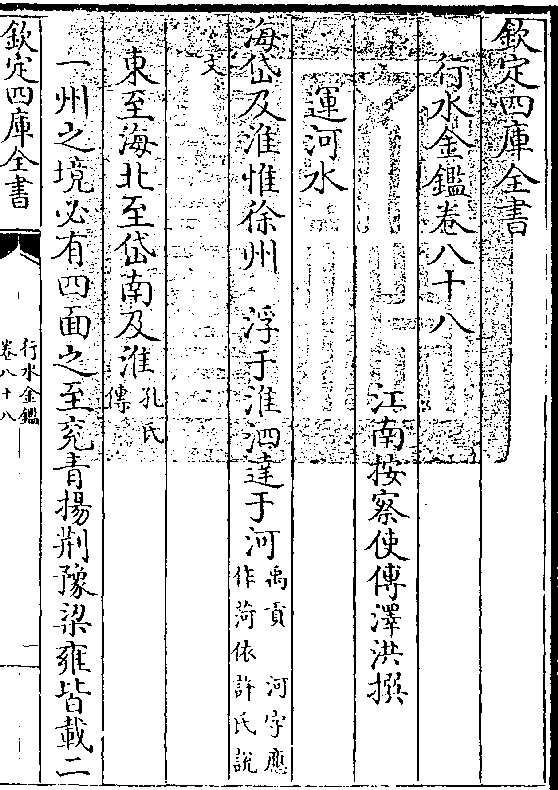 欽定四庫全書
行水金鑑卷八十八
江南按察使傅澤洪撰
運河水
海岱及淮惟徐州　浮于淮泗達于河禹貢　河字應作菏依許氏說
文
東至海北至岱南及淮孔氏傳
一州之境必有四面之至兖青揚荆豫梁雍皆載二
欽定四庫全書
行水金鑑
卷八十八
一